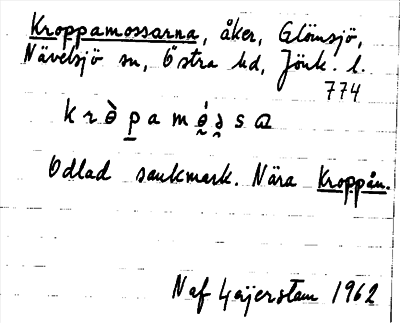 Kroppamossarna, åker, Glömsjö,
Nävelsjö sn, Östra hd, Jönk. l.
774
k r ò p a m ó s a
Odlad sankmark. Nära Kroppån.
Naf Gejerstam 1962